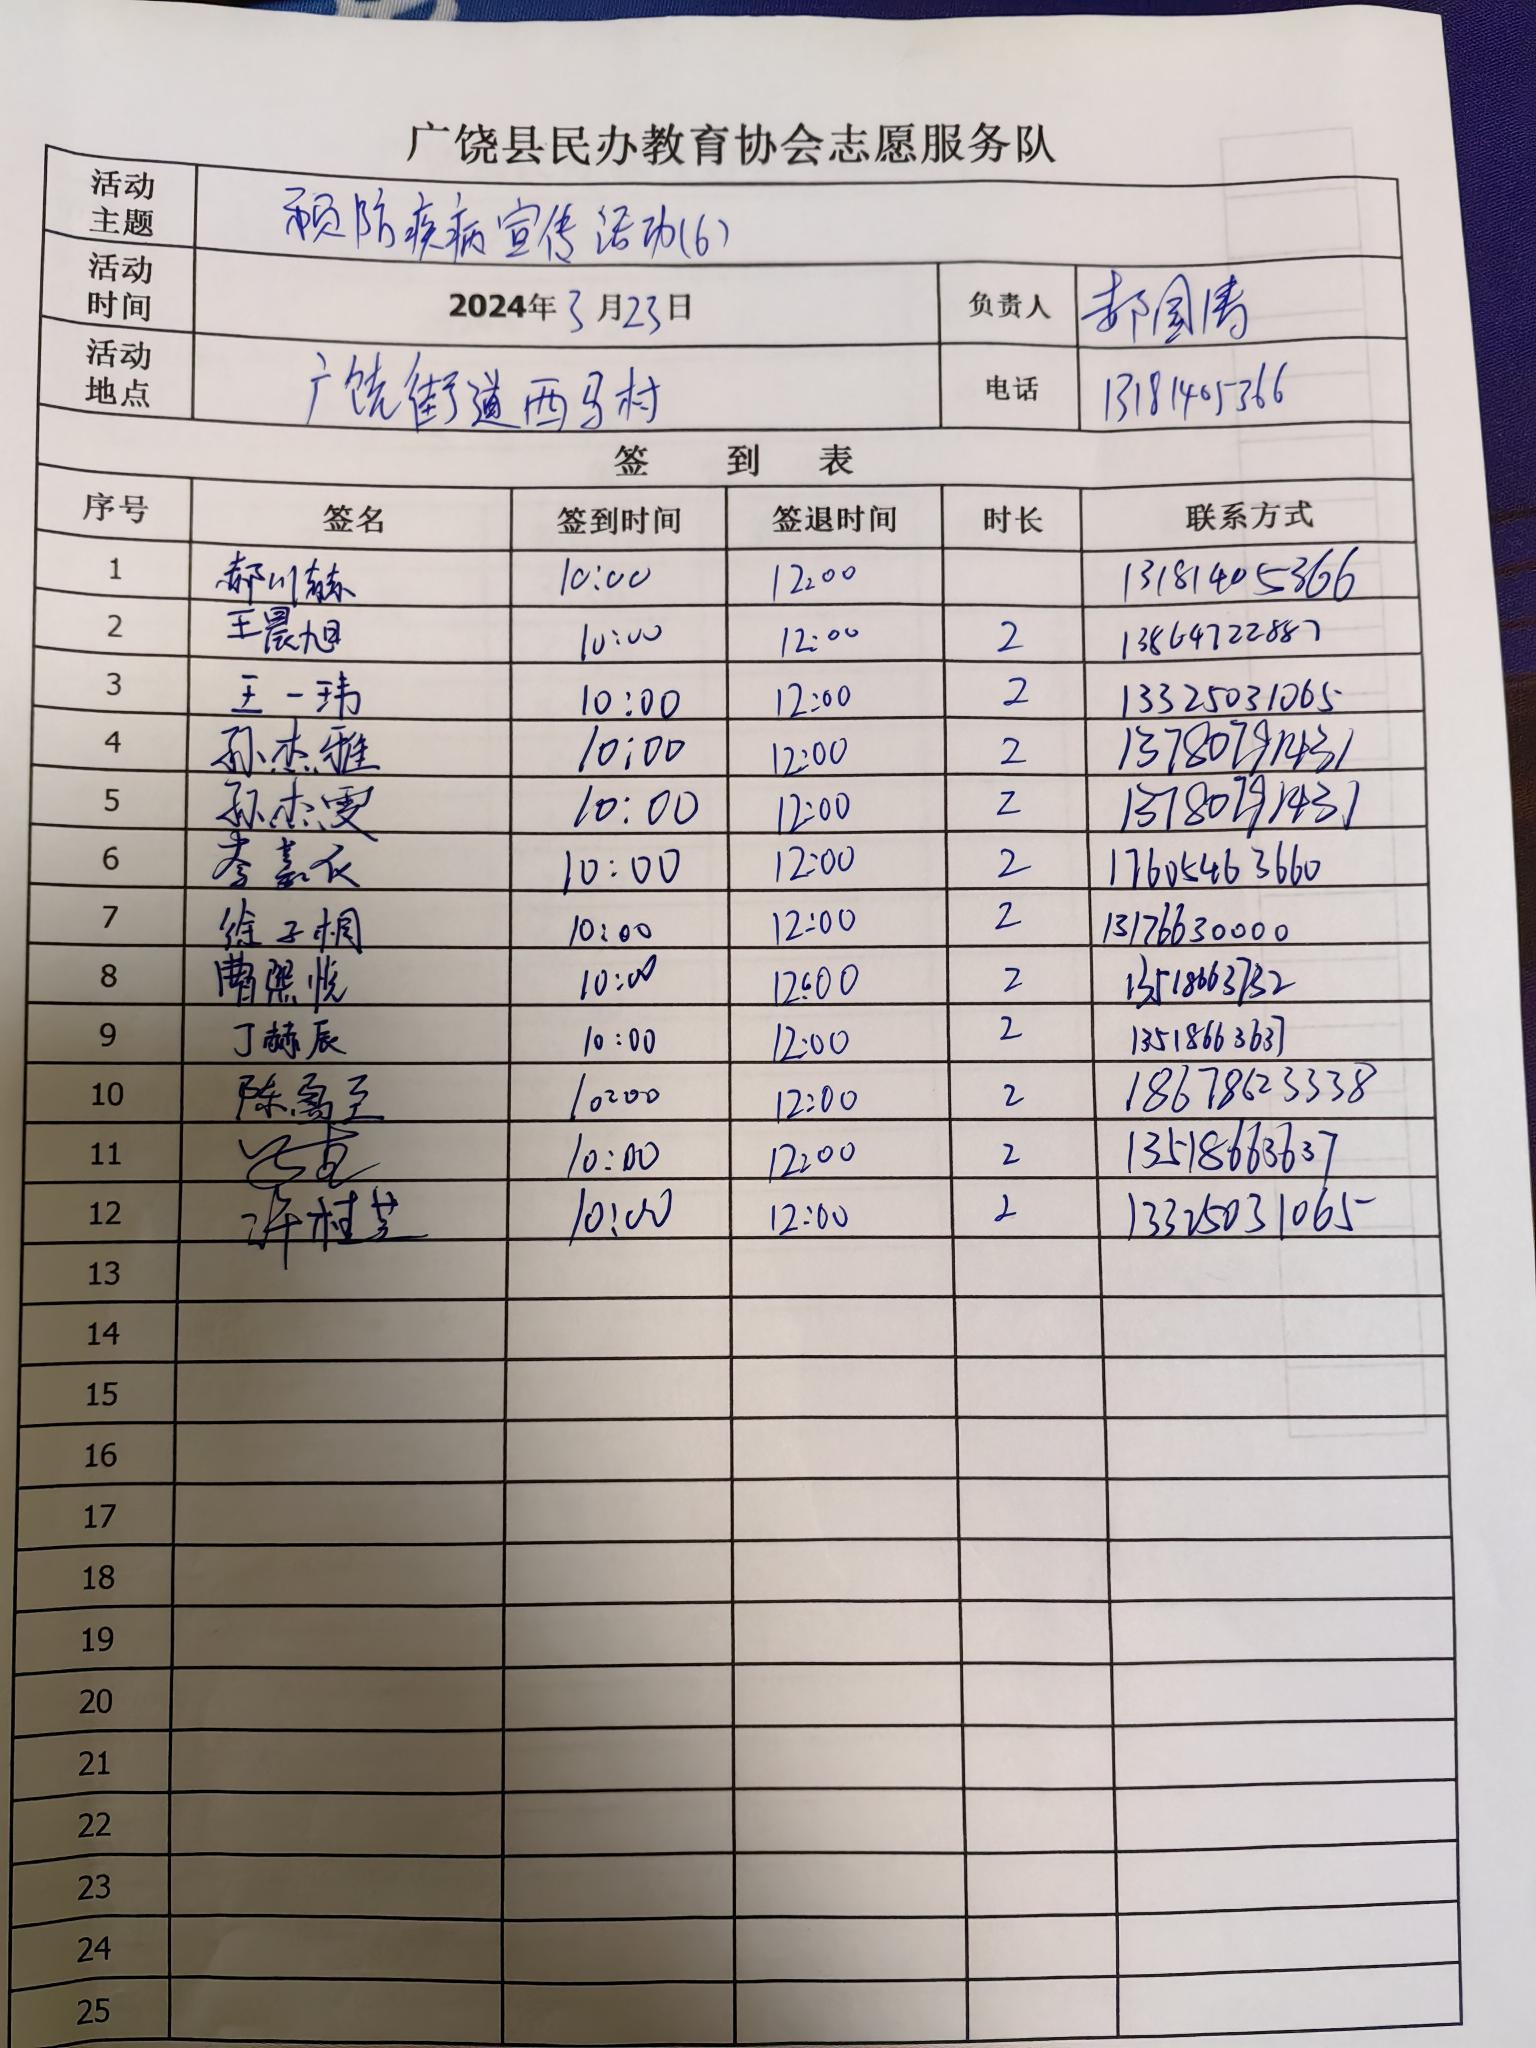 广饶县民办教育协会志愿服务队
活动主题 预防疾病宣传活动(6)
活动时间 2024年3月23日 负责人 郝国涛
活动地点 广饶街道西马村 电话 13181405366
签 到 表
序号 签名 签到时间 签退时间 时长 联系方式
1 郝川赫 10:00 12:00 13181405366
2 王晨旭 10:00 12:00 2 13864722887
3 王一玮 10:00 12:00 2 13325031065
4 孙杰雅 10:00 12:00 2 13780791431
5 孙杰雯 10:00 12:00 2 13780791431
6 李嘉依 10:00 12:00 2 17605463660
7 徐子桐 10:00 12:00 2 13176630000
8 曹梁悦 10:00 12:00 2 13518663732
9 丁赫辰 10:00 12:00 2 13518663637
10 10:00 12:00 2 18678623338
11 10:00 12:00 2 13518663637
12 许桂芝 10:00 12:00 2 13325031065
13
14
15
16
17
18
19
20
21
22
23
24
25